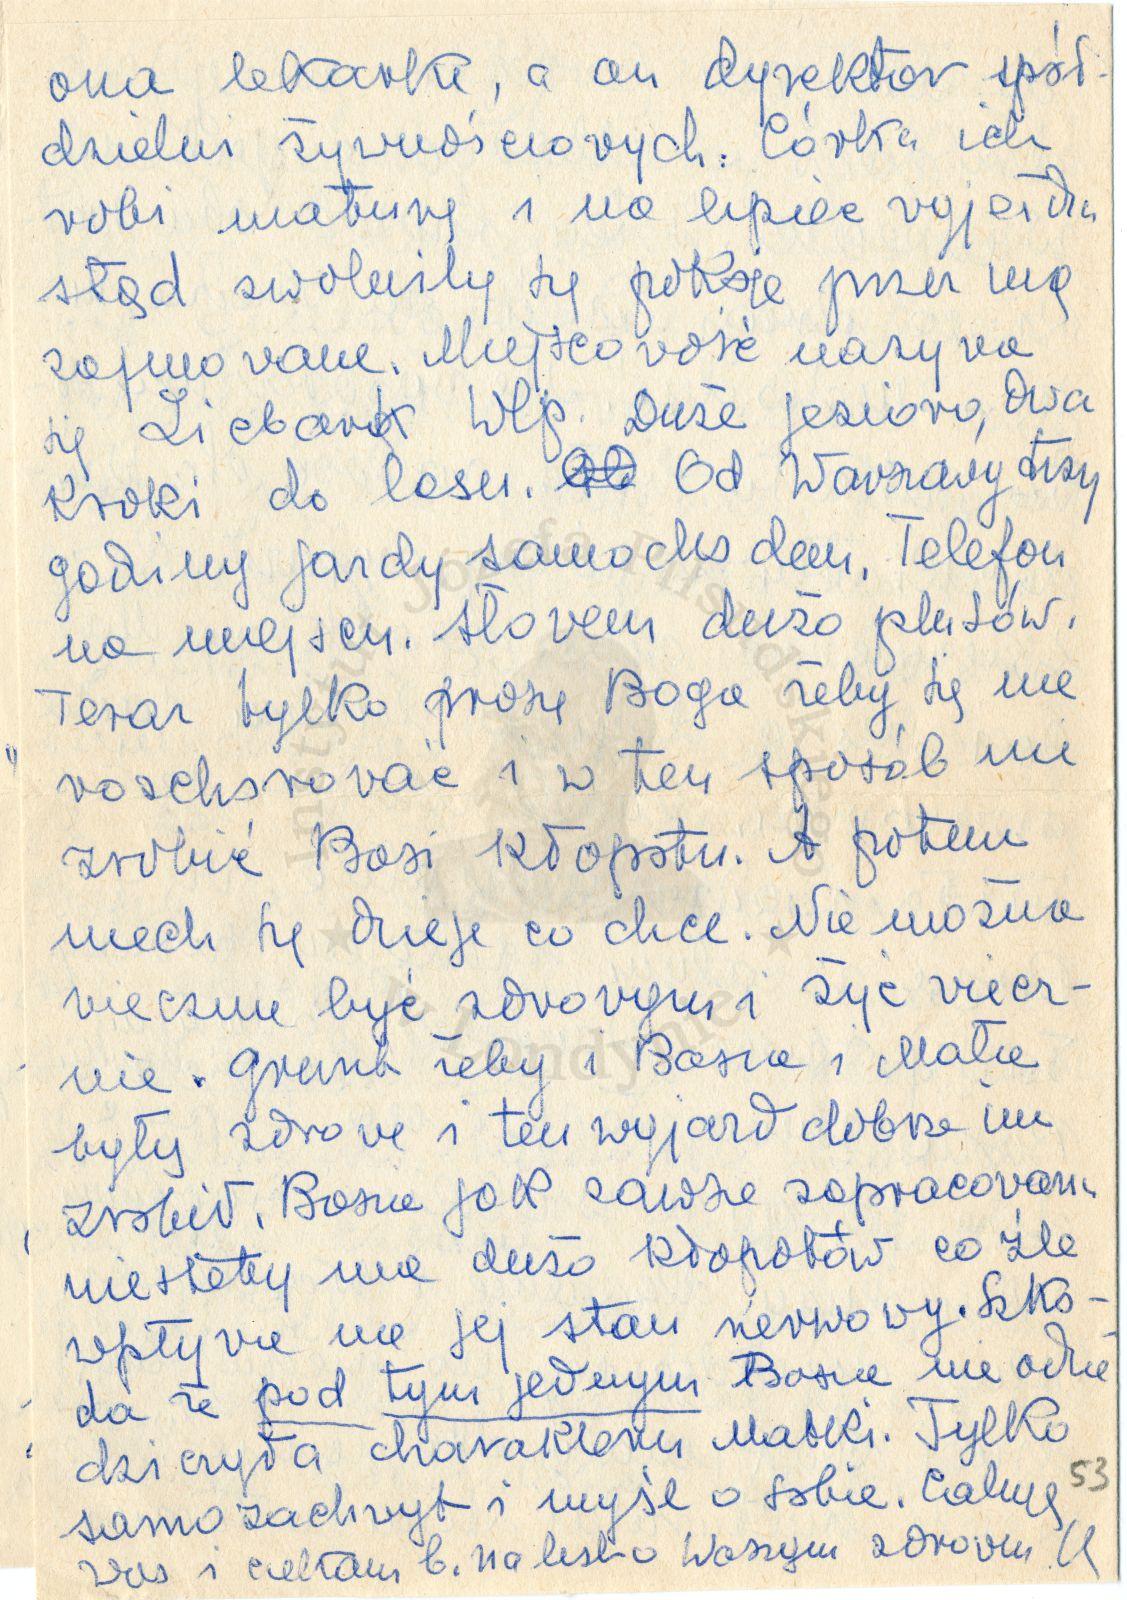 ona lekarka, a on dyrektor spół-
dzielni żywnościowych. Córka ich
robi maturę i na lipiec wyjeżdża
stąd zwolniły się pokoje przez nią
zajmowane. Miejscowość nazywa
się Licbark Wlp. Duże jezioro, dwa
kroki do lasu. Od Warszawy trzy
godziny jazdy samochodem. Telefon
na miejscu. Słowem dużo plusów.
Teraz tylko proszę Boga żeby się nie
rozchorować i w ten sposób nie
zrobić Basi kłopotu. A potem
niech się dzieje co chce. Nie można
wiecznie być zdrowym i żyć wiecz-
nie. Grunt żeby i Basia i Mała
były zdrowe i ten wyjazd dobrze im
zrobił. Basia jak zawsze zapracowana
niestety ma dużo kłopotów co źle
wpływa na jej stan nerwowy. Szko-
da że pod tym jednym Basia nie odzie
dziczyła charakteru Matki. Tylko
samozachwyt i myśl o sobie. Całuję
was i czekam b. na list o Waszym zdrowiu
53
Instytut Józefa Piłsudskiego
w Londynie